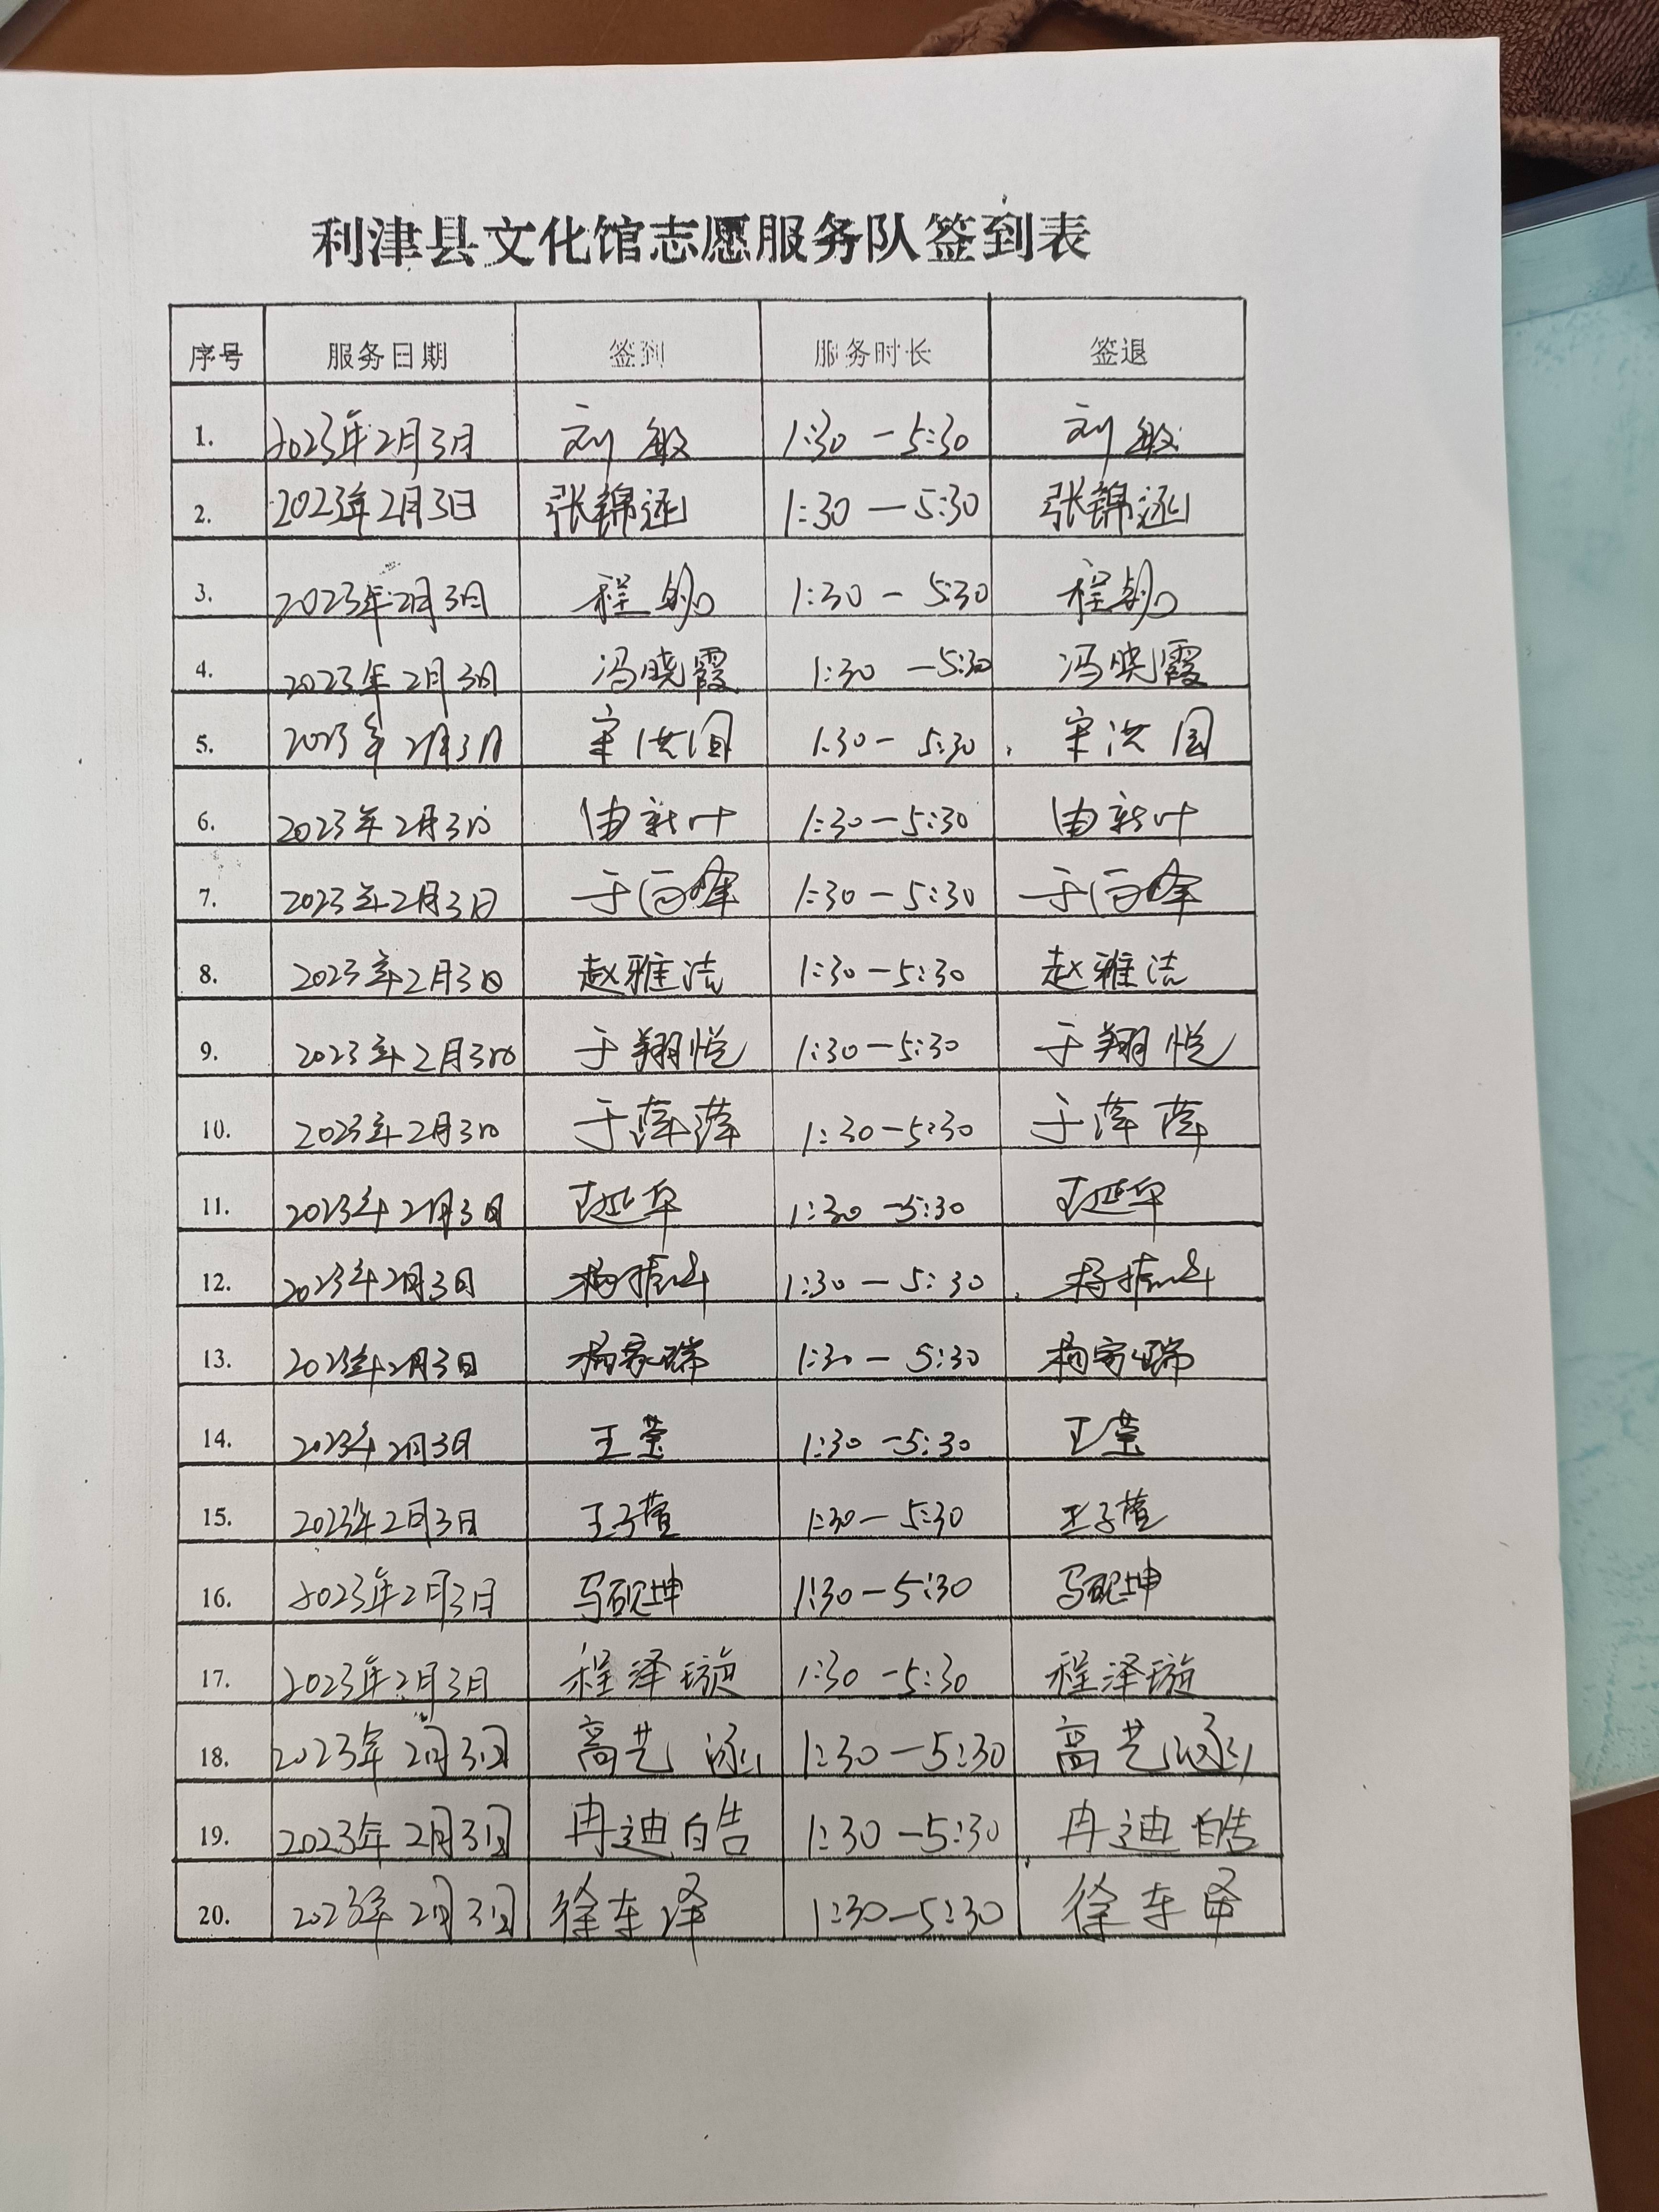 利津县文化馆志愿服务队签到表
序号 服务日期 签到 服务时长 签退
1. 2023年2月3日 刘敏 1:30-5:30 刘敏
2. 2023年2月3日 张锦涵 1:30-5:30 张锦涵
3. 2023年2月3日 程 1:30-5:30 程
4. 2023年2月3日 冯晓霞 1:30-5:30 冯晓霞
5. 2023年2月3日 宋洪国 1:30-5:30 宋洪国
6. 2023年2月3日 由新叶 1:30-5:30 由新叶
7. 2023年2月3日 于百峰 1:30-5:30 于百峰
8. 2023年2月3日 赵雅洁 1:30-5:30 赵雅洁
9. 2023年2月3日 于翔悦 1:30-5:30 于翔悦
10. 2023年2月3日 于萍萍 1:30-5:30 于萍萍
11. 2023年2月3日 王延华 1:30-5:30 王延华
12. 2023年2月3日 杨振 1:30-5:30 杨振
13. 2023年2月3日 杨家瑞 1:30-5:30 杨家瑞
14. 2023年2月3日 王莹 1:30-5:30 王莹
15. 2023年2月3日 王子萱 1:30-5:30 王子萱
16. 2023年2月3日 马砚坤 1:30-5:30 马砚坤
17. 2023年2月3日 程泽璇 1:30-5:30 程泽璇
18. 2023年2月3日 高艺涵 1:30-5:30 高艺涵
19. 2023年2月3日 冉迪皓 1:30-5:30 冉迪皓
20. 2023年2月3日 徐东泽 1:30-5:30 徐东泽